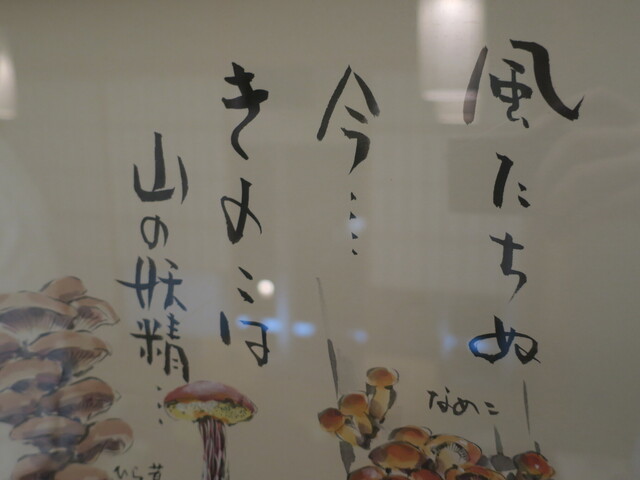 風たちぬ
今…
きのこは
山の妖精…
なめこ
ひら茸